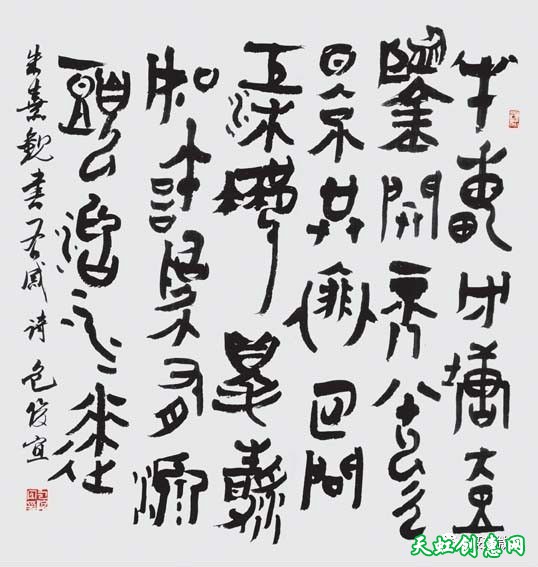 半畝方塘壹
鑒開天光雲
景共徘徊問
渠那得清
如許為有源
頭活水來
朱熹觀書有感詩 包俊宜
天虹创意网